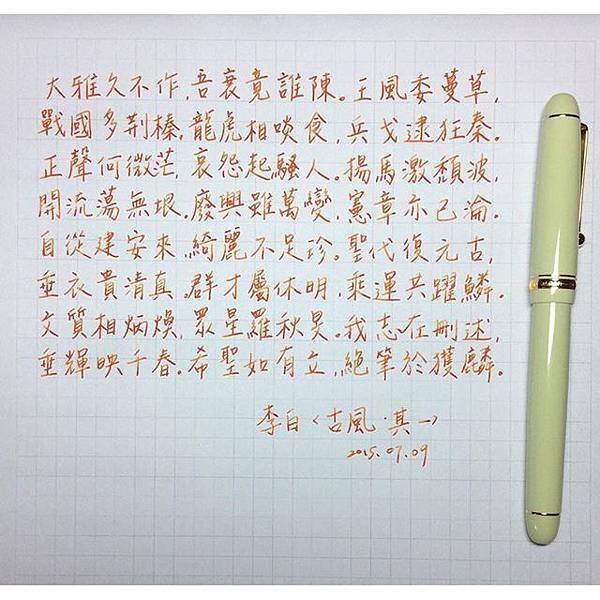 大雅久不作,吾衰竟誰陳。王風委蔓草,
戰國多荆榛,龍虎相啖食,兵戈逮狂秦。
正聲何微茫,哀怨起騷人。揚馬激頹波,
開流蕩無垠。廢興雖萬變,憲章亦已淪。
自從建安來,綺麗不足珍。聖代復元古,
垂衣貴清真。群才屬休明,乘運共躍鱗。
文質相炳煥,眾星羅秋旻。我志在刪述,
垂輝映千春。希聖如有立,絕筆於獲麟。
李白〈古風·其一〉
2015.07.09